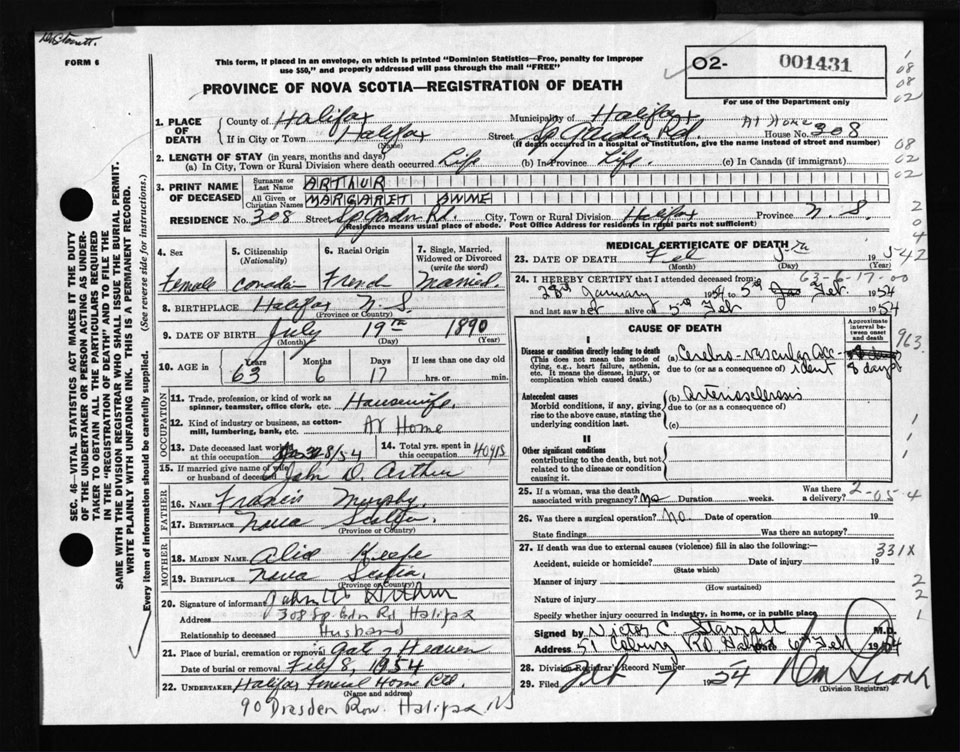 FORM 6
This form, if placed in an envelope, on which is printed "Dominion Statistics—Free, penalty for improper
use $50," and properly addressed will pass through the mail "FREE"
02- 001431
PROVINCE OF NOVA SCOTIA—REGISTRATION OF DEATH
For use of the Department only
1. PLACE OF DEATH County of Halifax Municipality of Halifax At Home
If in City or Town Halifax Street Sp Garden Rd. House No. 308
(Name) (If death occurred in a hospital or institution, give the name instead of street and number)
2. LENGTH OF STAY (in years, months and days)
(a) In City, Town or Rural Division where death occurred Life (b) In Province Life. (c) In Canada (if immigrant)
3. PRINT NAME OF DECEASED Surname or Last Name ARTHUR
All Given or Christian Names MARGARET ANNE
RESIDENCE No. 308 Street Sp Garden Rd. City, Town or Rural Division Halifax Province N.S.
(Residence means usual place of abode. Post Office Address for residents in rural parts not sufficient)
4. Sex Female
5. Citizenship (Nationality) Canadian
6. Racial Origin French
7. Single, Married, Widowed or Divorced (write the word) Married.
8. BIRTHPLACE Halifax N.S.
(Province or Country)
9. DATE OF BIRTH July 19th 1890
(Month) (Day) (Year)
10. AGE in Years 63 Months 6 Days 17 If less than one day old
hrs. or min.
OCCUPATION
11. Trade, profession, or kind of work as spinner, teamster, office clerk, etc. Housewife.
12. Kind of industry or business, as cotton-mill, lumbering, bank, etc. At Home
13. Date deceased last worked at this occupation 28/54 14. Total yrs. spent in this occupation 40 yrs
15. If married give name of wife or husband of deceased John D. Arthur
FATHER
16. NAME Francis Murphy
17. BIRTHPLACE Nova Scotia.
(Province or Country)
MOTHER
18. MAIDEN NAME Alice Keefe
19. BIRTHPLACE Nova Scotia.
(Province or Country)
20. Signature of informant John Arthur
Address 308 Sp Gdn Rd Halifax
Relationship to deceased Husband
21. Place of burial, cremation or removal Gate of Heaven
Date of burial or removal Feb 8, 1954
22. UNDERTAKER Halifax Funeral Home Ltd.
(Name and address)
90 Dresden Row. Halifax, NS
MEDICAL CERTIFICATE OF DEATH
23. DATE OF DEATH Feb 5th 1954
(Month) (Day) (Year)
63-6-17-00
24. I HEREBY CERTIFY that I attended deceased from:
28th January 1954 to 5th Feb. 1954
and last saw her alive on 5th Feb 1954
CAUSE OF DEATH
Approximate interval between onset and death
I
Disease or condition directly leading to death (a) Cerebro-vascular Accident 8 days
(This does not mean the mode of dying, e.g., heart failure, asthenia, etc. It means the disease, injury, or complication which caused death.)
due to (or as a consequence of)
Antecedent causes (b) Arteriosclerosis
Morbid conditions, if any, giving rise to the above cause, stating the underlying condition last.
due to (or as a consequence of)
(c)
II
Other significant conditions
contributing to the death, but not related to the disease or condition causing it.
25. If a woman, was the death associated with pregnancy? No Duration weeks. Was there a delivery?
2-05-4
26. Was there a surgical operation? No Date of operation 19
State findings Was there an autopsy?
27. If death was due to external causes (violence) fill in also the following: 331X
Accident, suicide or homicide? Date of injury 19
(State which)
Manner of injury
(How sustained)
Nature of injury
Specify whether injury occurred in industry, in home, or in public place
Signed by Victor C. M.D.
Address 51 Coburg Rd Halifax 6th Feb 1954
28. Division Registrar's Record Number
29. Filed Feb 7 1954
(Division Registrar)
SEC. 46—VITAL STATISTICS ACT MAKES IT THE DUTY
OF THE UNDERTAKER OR PERSON ACTING AS UNDER-
TAKER TO OBTAIN ALL THE PARTICULARS REQUIRED
IN THE "REGISTRATION OF DEATH" AND TO FILE THE
SAME WITH THE DIVISION REGISTRAR WHO SHALL ISSUE THE BURIAL PERMIT.
WRITE PLAINLY WITH UNFADING INK. THIS IS A PERMANENT RECORD.
Every item of information should be carefully supplied. (See reverse side for instructions.)
08
08
02
08
02
02
2
0
4
2
963
1
1
1
2
2
1